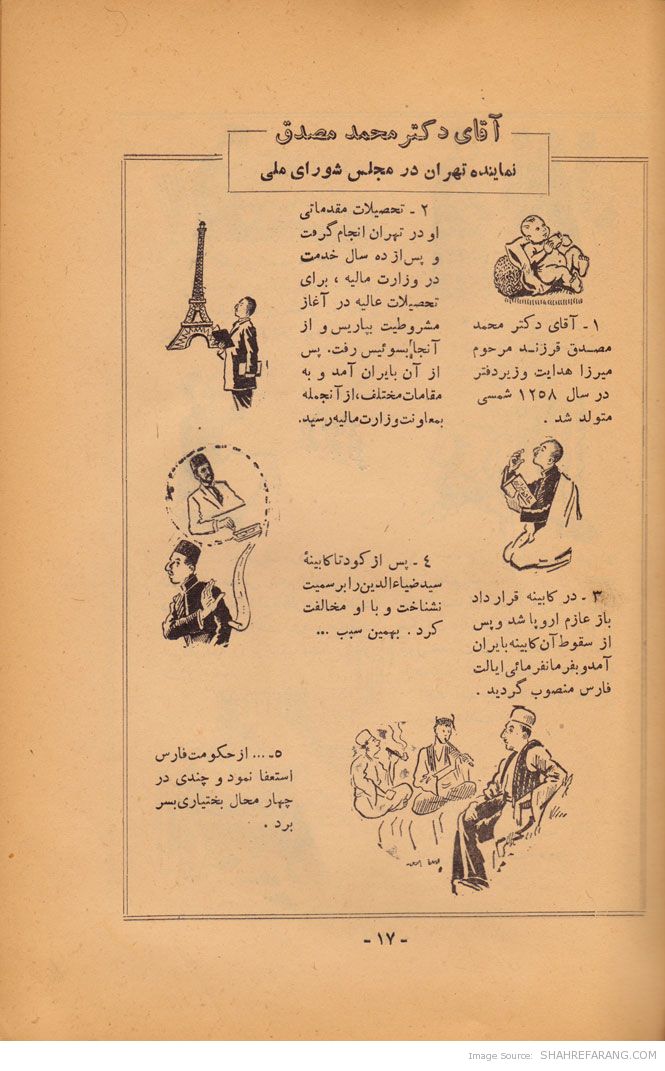 آقای دکتر محمد مصدق
نماینده تهران در مجلس شورای ملی
۱ - آقای دکتر محمد
مصدق فرزند مرحوم
میرزا هدایت وزیر دفتر
در سال ۱۲۵۸ شمسی
متولد شد .
۲ - تحصیلات مقدماتی
او در تهران انجام گرفت
و پس از ده سال خدمت
در وزارت مالیه ، برای
تحصیلات عالیه در آغاز
مشروطیت بپاریس و از
آنجا بسوئیس رفت. پس
از آن بایران آمد و به
مقامات مختلف، از آنجمله
بمعاونت وزارت مالیه رسید.
۳ - در کابینه قرار داد
باز عازم اروپا شد و پس
از سقوط آن کابینه بایران
آمد و بفرمانفرمائی ایالت
فارس منصوب گردید .
۴ - پس از کودتا کابینهٔ
سید ضیاءالدین را برسمیت
نشناخت و با او مخالفت
کرد . بهمین سبب ...
۵- ... از حکومت فارس
استعفا نمود و چندی در
چهار محال بختیاری بسر
برد .
- ۱۷ -
Image Source: SHAHREFARANG.COM